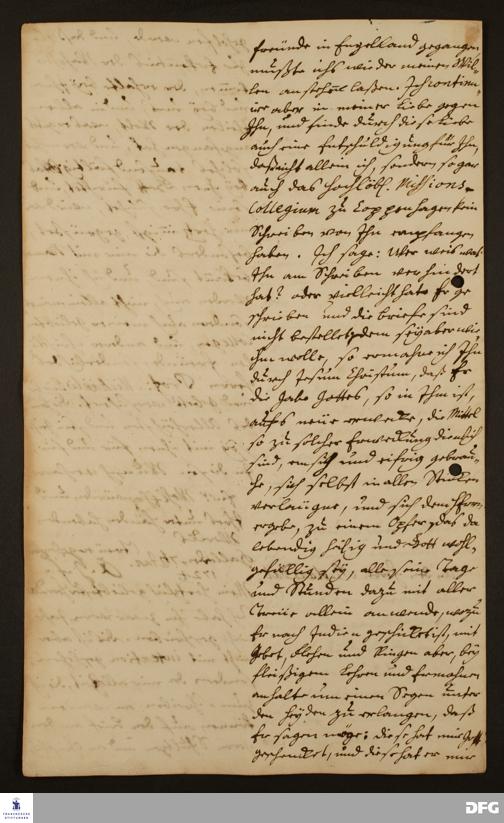 freünde in Engelland gegangen
müßte ichs wieder meinen Wil-
len anstehen laßen. Ich continu-
ire aber in meiner Liebe gegen
Ihn, und finde durch diese Liebe
auch eine Entschuldigung für Ihn,
daß nicht allein ich, sondern sogar
auch das Hochlöbl. Missions-
Collegium zu Coppenhagen kein
Schreiben von Ihn empfangen
haben. Ich sage: Wer weis was
Ihn am Schreiben verhindert
hat? oder vielleicht hat Er ge
schrieben und die briefe sind
nicht bestellet; dem sey aber wie
ihm wolle, so ermahne ich Ihn
durch Jesum Christum, daß Er
die Gabe Gottes, so in Ihm ist,
aufs neüe erwecke, die Mittel
so zu solcher Erweckung dienlich
sind, emsig und eifrig gebrau-
che, sich selbst in allen Stücken
verläugne, und sich dem HErrn
ergebe, zu einem Opfer, das da
lebendig heilig und Gott wohl-
gefällig sey, alle seine Tage
und Stunden dazu mit aller
Treüe allein anwende, wozu
Er nach Indien geschicket ist, mit
Gebet, Flehen und Ringen aber, bey
fleißigem Lehren und Ermahnen
anhalte um einen Segen unter
den Heyden zu erlangen, daß
Er sagen möge: diese hat mir Gott
geschencket, und diese hat er mir
FRANCKESCHE
STIFTUNGEN
DFG